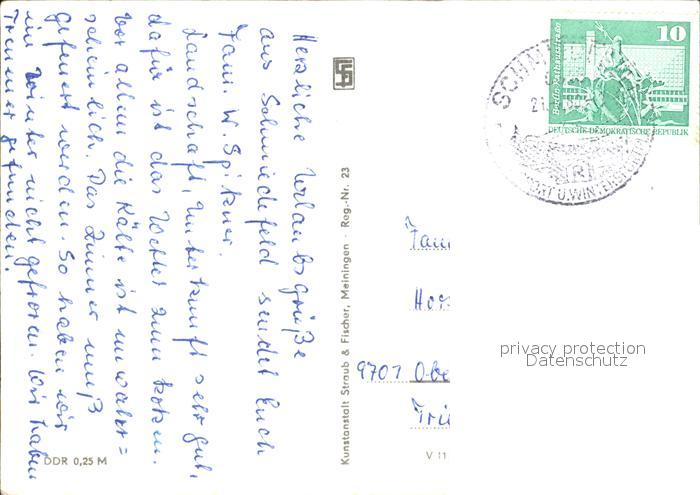 Herzliche Urlaubsgrüße
aus Schmiedefeld sendet Euch
Fam. W.
Landschaft, Unterkunft sehr gut,
dafür ist das Wetter zum kotzen.
Vor allem die Kälte ist unwahr=
scheinlich. Das Zimmer muß
gefeuert werden. So haben wir
im Winter nicht gefroren. Wir haben
gefunden.
DDR 0,25 M
Kunstanstalt Straub & Fischer, Meiningen · Reg.-Nr. 23
V 11
10
Berlin, Rathausstraße
DEUTSCHE DEMOKRATISCHE REPUBLIK
Fam
Hor
9701 Obe
privacy protection
Datenschutz